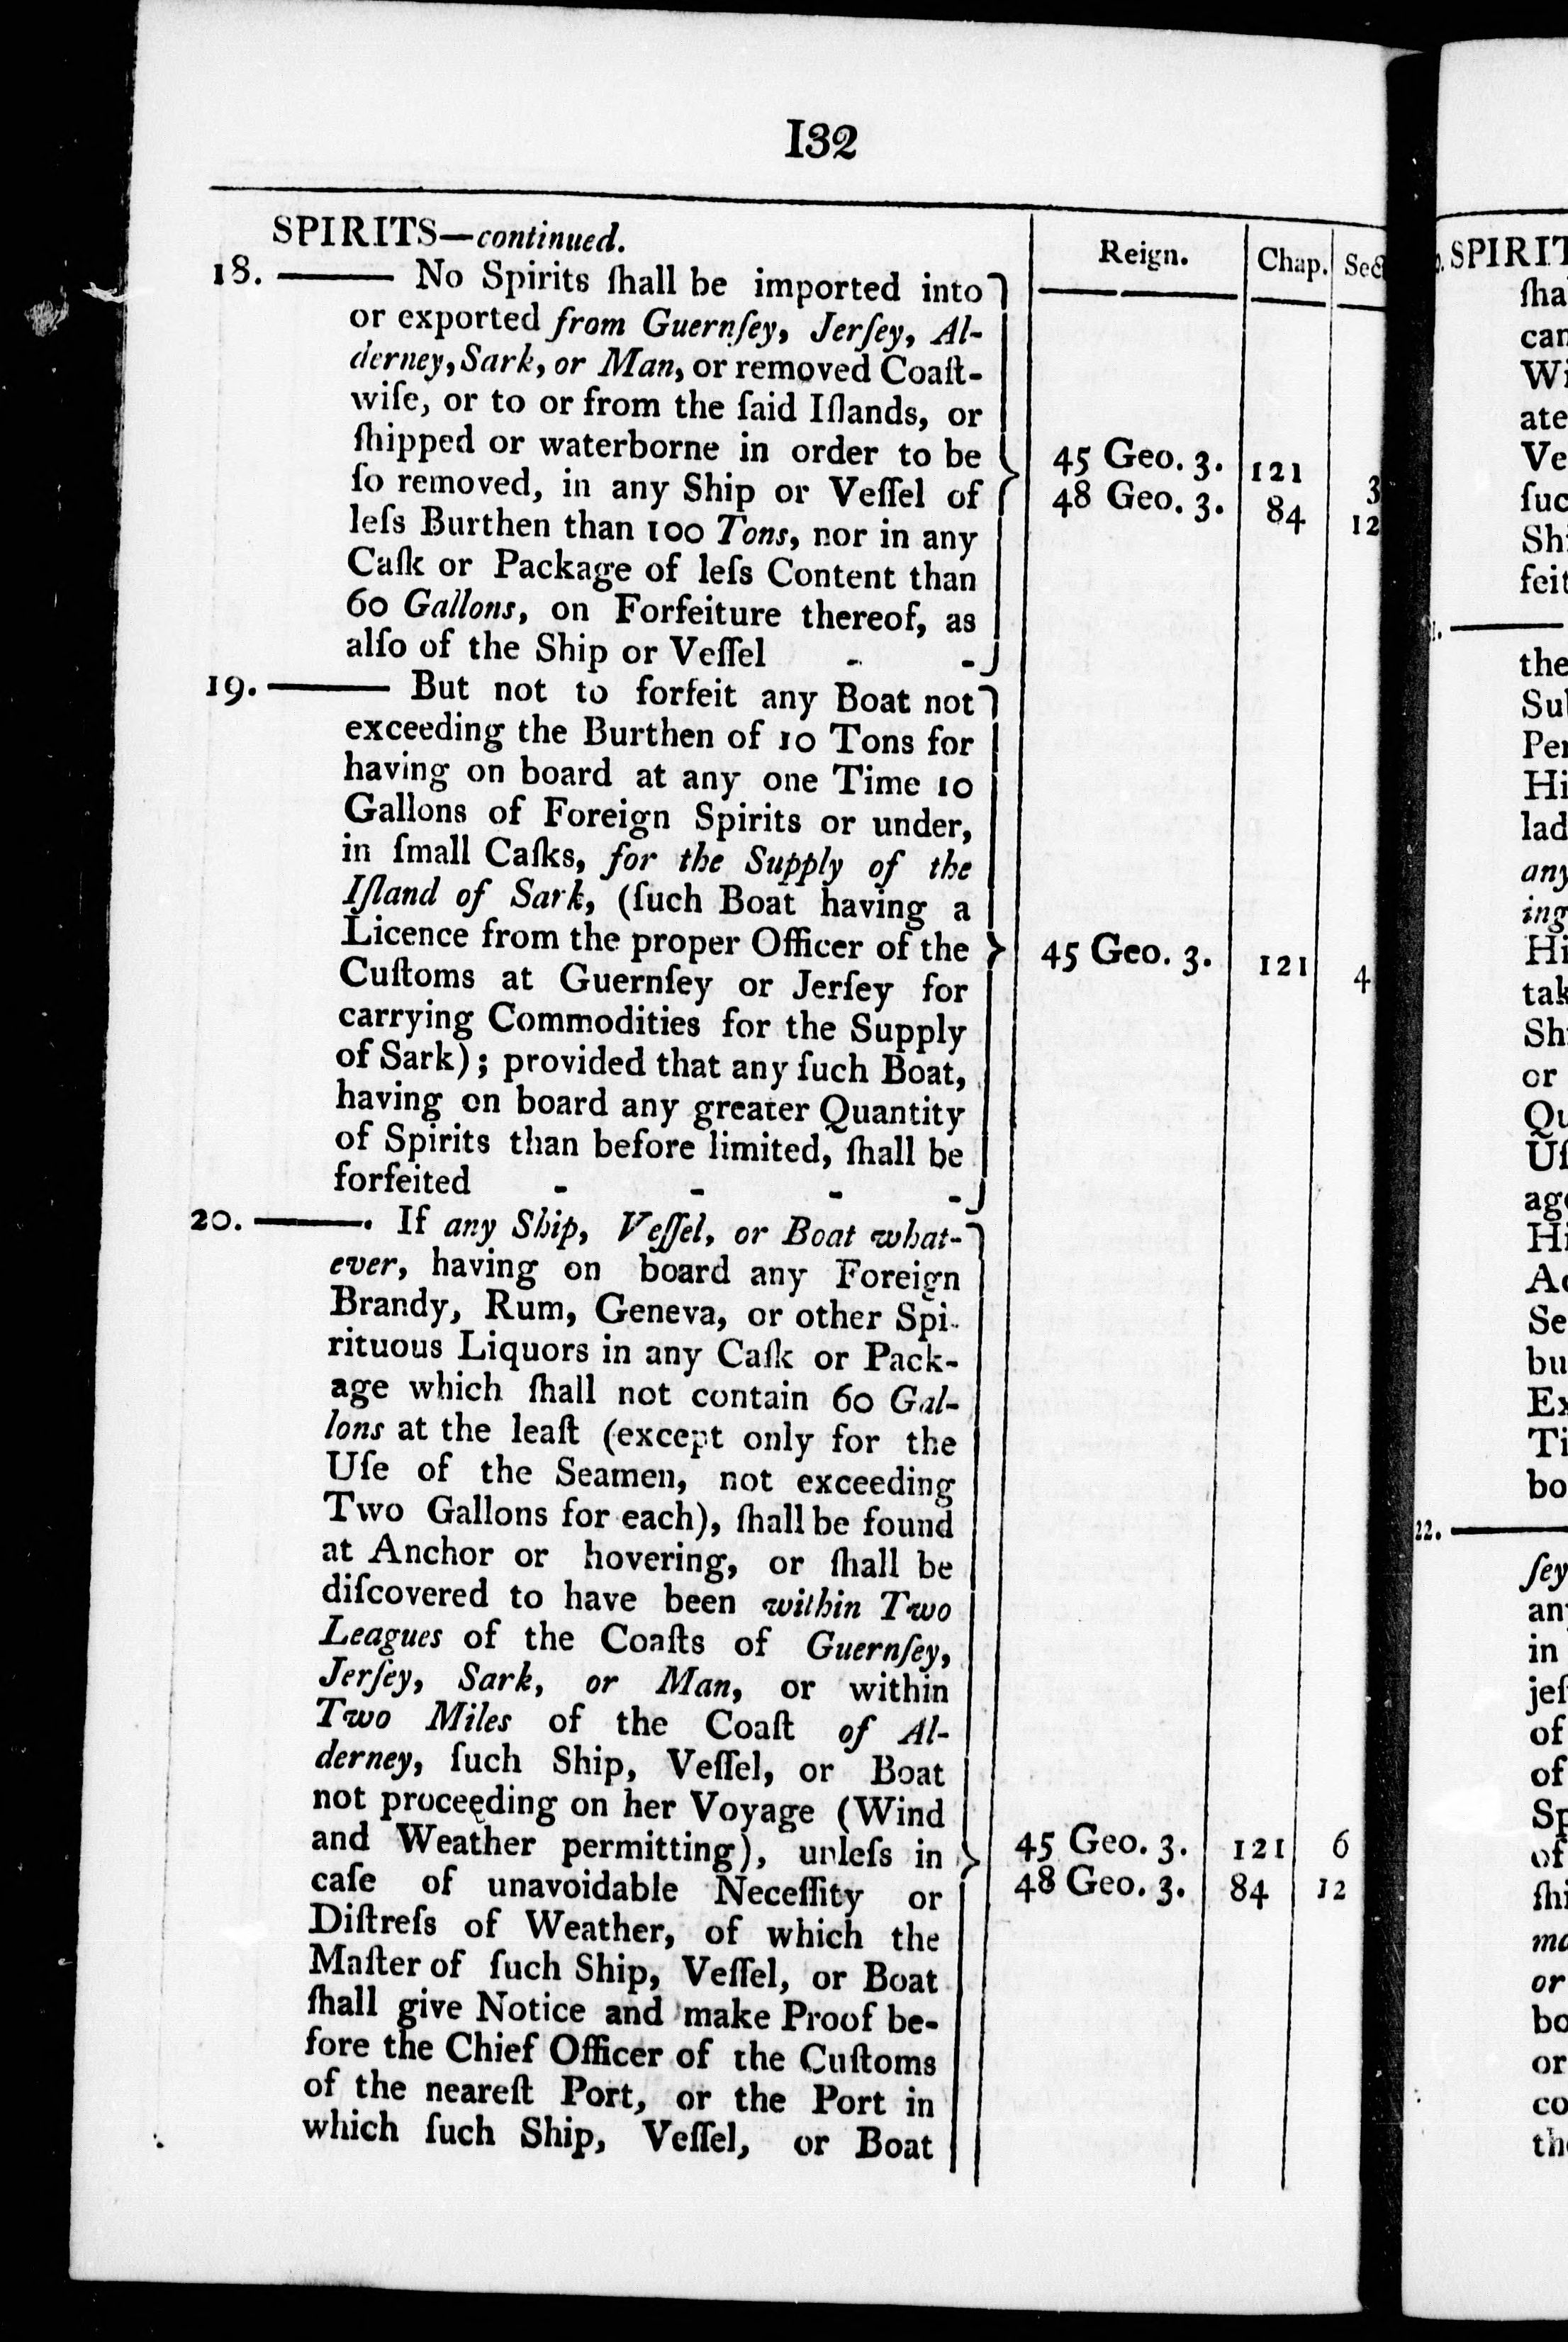 132
SPIRITS—continued.
Reign. Chap. Sect
18. ——— No Spirits ſhall be imported into
or exported from Guernſey, Jerſey, Al-
derney, Sark, or Man, or removed Coaſt-
wiſe, or to or from the ſaid Iſlands, or
ſhipped or waterborne in order to be
ſo removed, in any Ship or Veſſel of
leſs Burthen than 100 Tons, nor in any
Caſk or Package of leſs Content than
60 Gallons, on Forfeiture thereof, as
alſo of the Ship or Veſſel - -
45 Geo. 3. 121 3
48 Geo. 3. 84 12
19. ——— But not to forfeit any Boat not
exceeding the Burthen of 10 Tons for
having on board at any one Time 10
Gallons of Foreign Spirits or under,
in ſmall Caſks, for the Supply of the
Iſland of Sark, (ſuch Boat having a
Licence from the proper Officer of the
Cuſtoms at Guernſey or Jerſey for
carrying Commodities for the Supply
of Sark); provided that any ſuch Boat,
having on board any greater Quantity
of Spirits than before limited, ſhall be
forfeited - - - -
45 Geo. 3. 121 4
20. ———. If any Ship, Veſſel, or Boat what-
ever, having on board any Foreign
Brandy, Rum, Geneva, or other Spi-
rituous Liquors in any Caſk or Pack-
age which ſhall not contain 60 Gal-
lons at the leaſt (except only for the
Uſe of the Seamen, not exceeding
Two Gallons for each), ſhall be found
at Anchor or hovering, or ſhall be
diſcovered to have been within Two
Leagues of the Coaſts of Guernſey,
Jerſey, Sark, or Man, or within
Two Miles of the Coaſt of Al-
derney, ſuch Ship, Veſſel, or Boat
not proceeding on her Voyage (Wind
and Weather permitting), unleſs in
caſe of unavoidable Neceſſity or
Diſtreſs of Weather, of which the
Maſter of ſuch Ship, Veſſel, or Boat
ſhall give Notice and make Proof be-
fore the Chief Officer of the Cuſtoms
of the neareſt Port, or the Port in
which ſuch Ship, Veſſel, or Boat
45 Geo. 3. 121 6
48 Geo. 3. 84 12
SPIRIT
ſha
can
Wi
ate
Ve
ſuc
Sh
feit
the
Su
Per
Hi
lad
any
ing
Hi
tak
Sh
or
Qu
Uſ
age
Hi
Ac
Se
bu
Ex
Ti
bo
22. ———
ſey
an
in
jeſ
of
of
Sp
of
ſhi
ma
or
bo
or
co
th